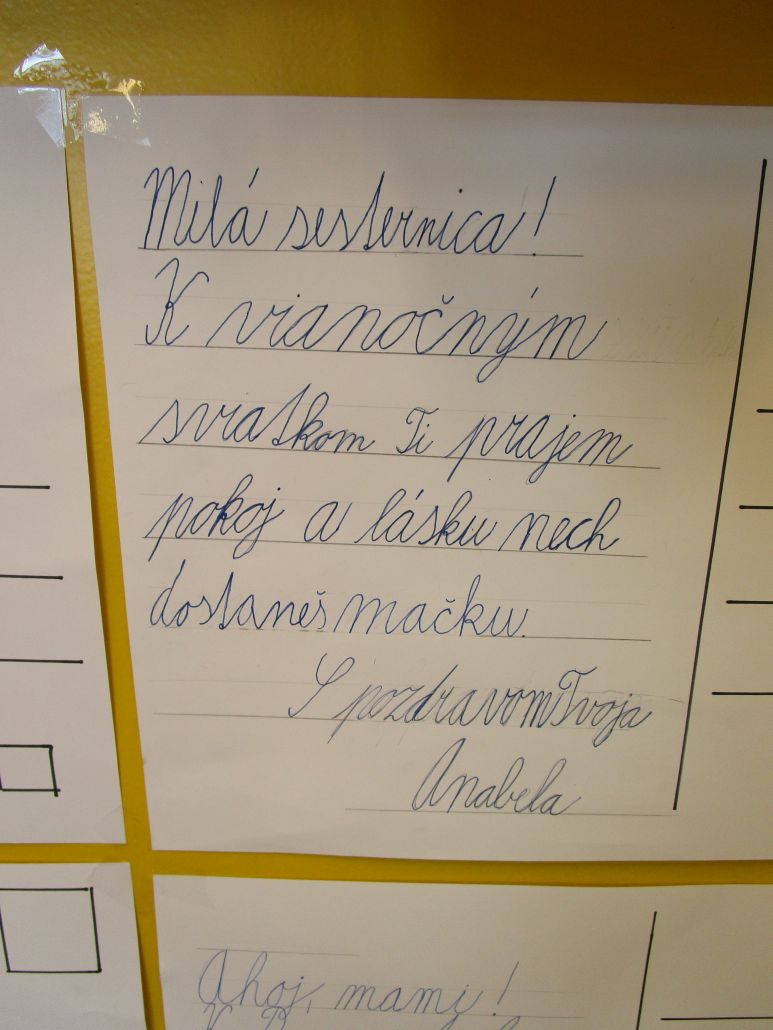 Milá sesternica!
K vianočným
sviatkom Ti prajem
pokoj a lásku nech
dostaneš mačku.
S pozdravom Tvoja
Anabela
Ahoj, mami!